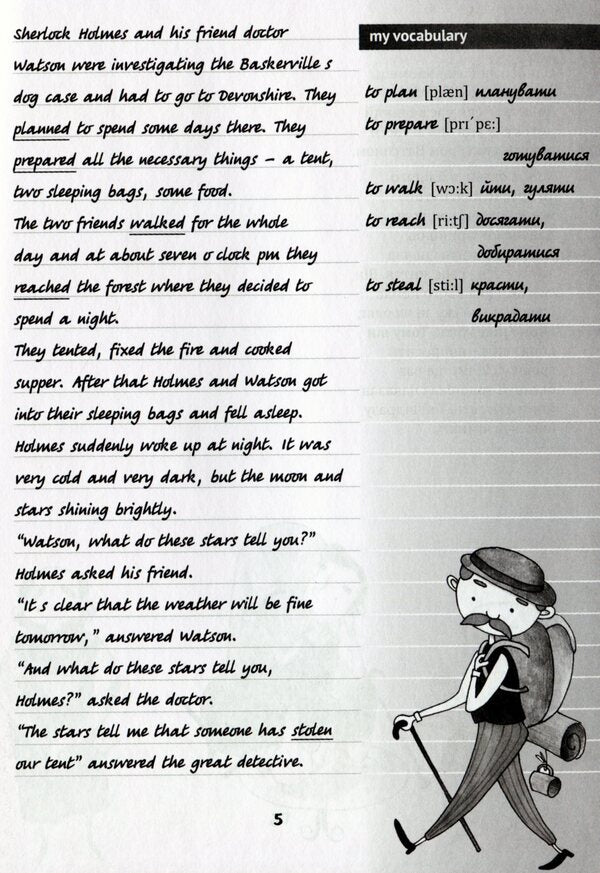 Sherlock Holmes and his friend doctor
Watson were investigating the Baskerville s
dog case and had to go to Devonshire. They
planned to spend some days there. They
prepared all the necessary things – a tent,
two sleeping bags, some food.
The two friends walked for the whole
day and at about seven o clock pm they
reached the forest where they decided to
spend a night.
They tented, fixed the fire and cooked
supper. After that Holmes and Watson got
into their sleeping bags and fell asleep.
Holmes suddenly woke up at night. It was
very cold and very dark, but the moon and
stars shining brightly.
“Watson, what do these stars tell you?”
Holmes asked his friend.
“It s clear that the weather will be fine
tomorrow,” answered Watson.
“And what do these stars tell you,
Holmes?” asked the doctor.
“The stars tell me that someone has stolen
our tent” answered the great detective.
my vocabulary
to plan [plæn] планувати
to prepare [prɪˊpɛ:]
готуватися
to walk [wɔ:k] йти, гуляти
to reach [ri:tʃ] досягати,
добиратися
to steal [sti:l] красти,
викрадати
5